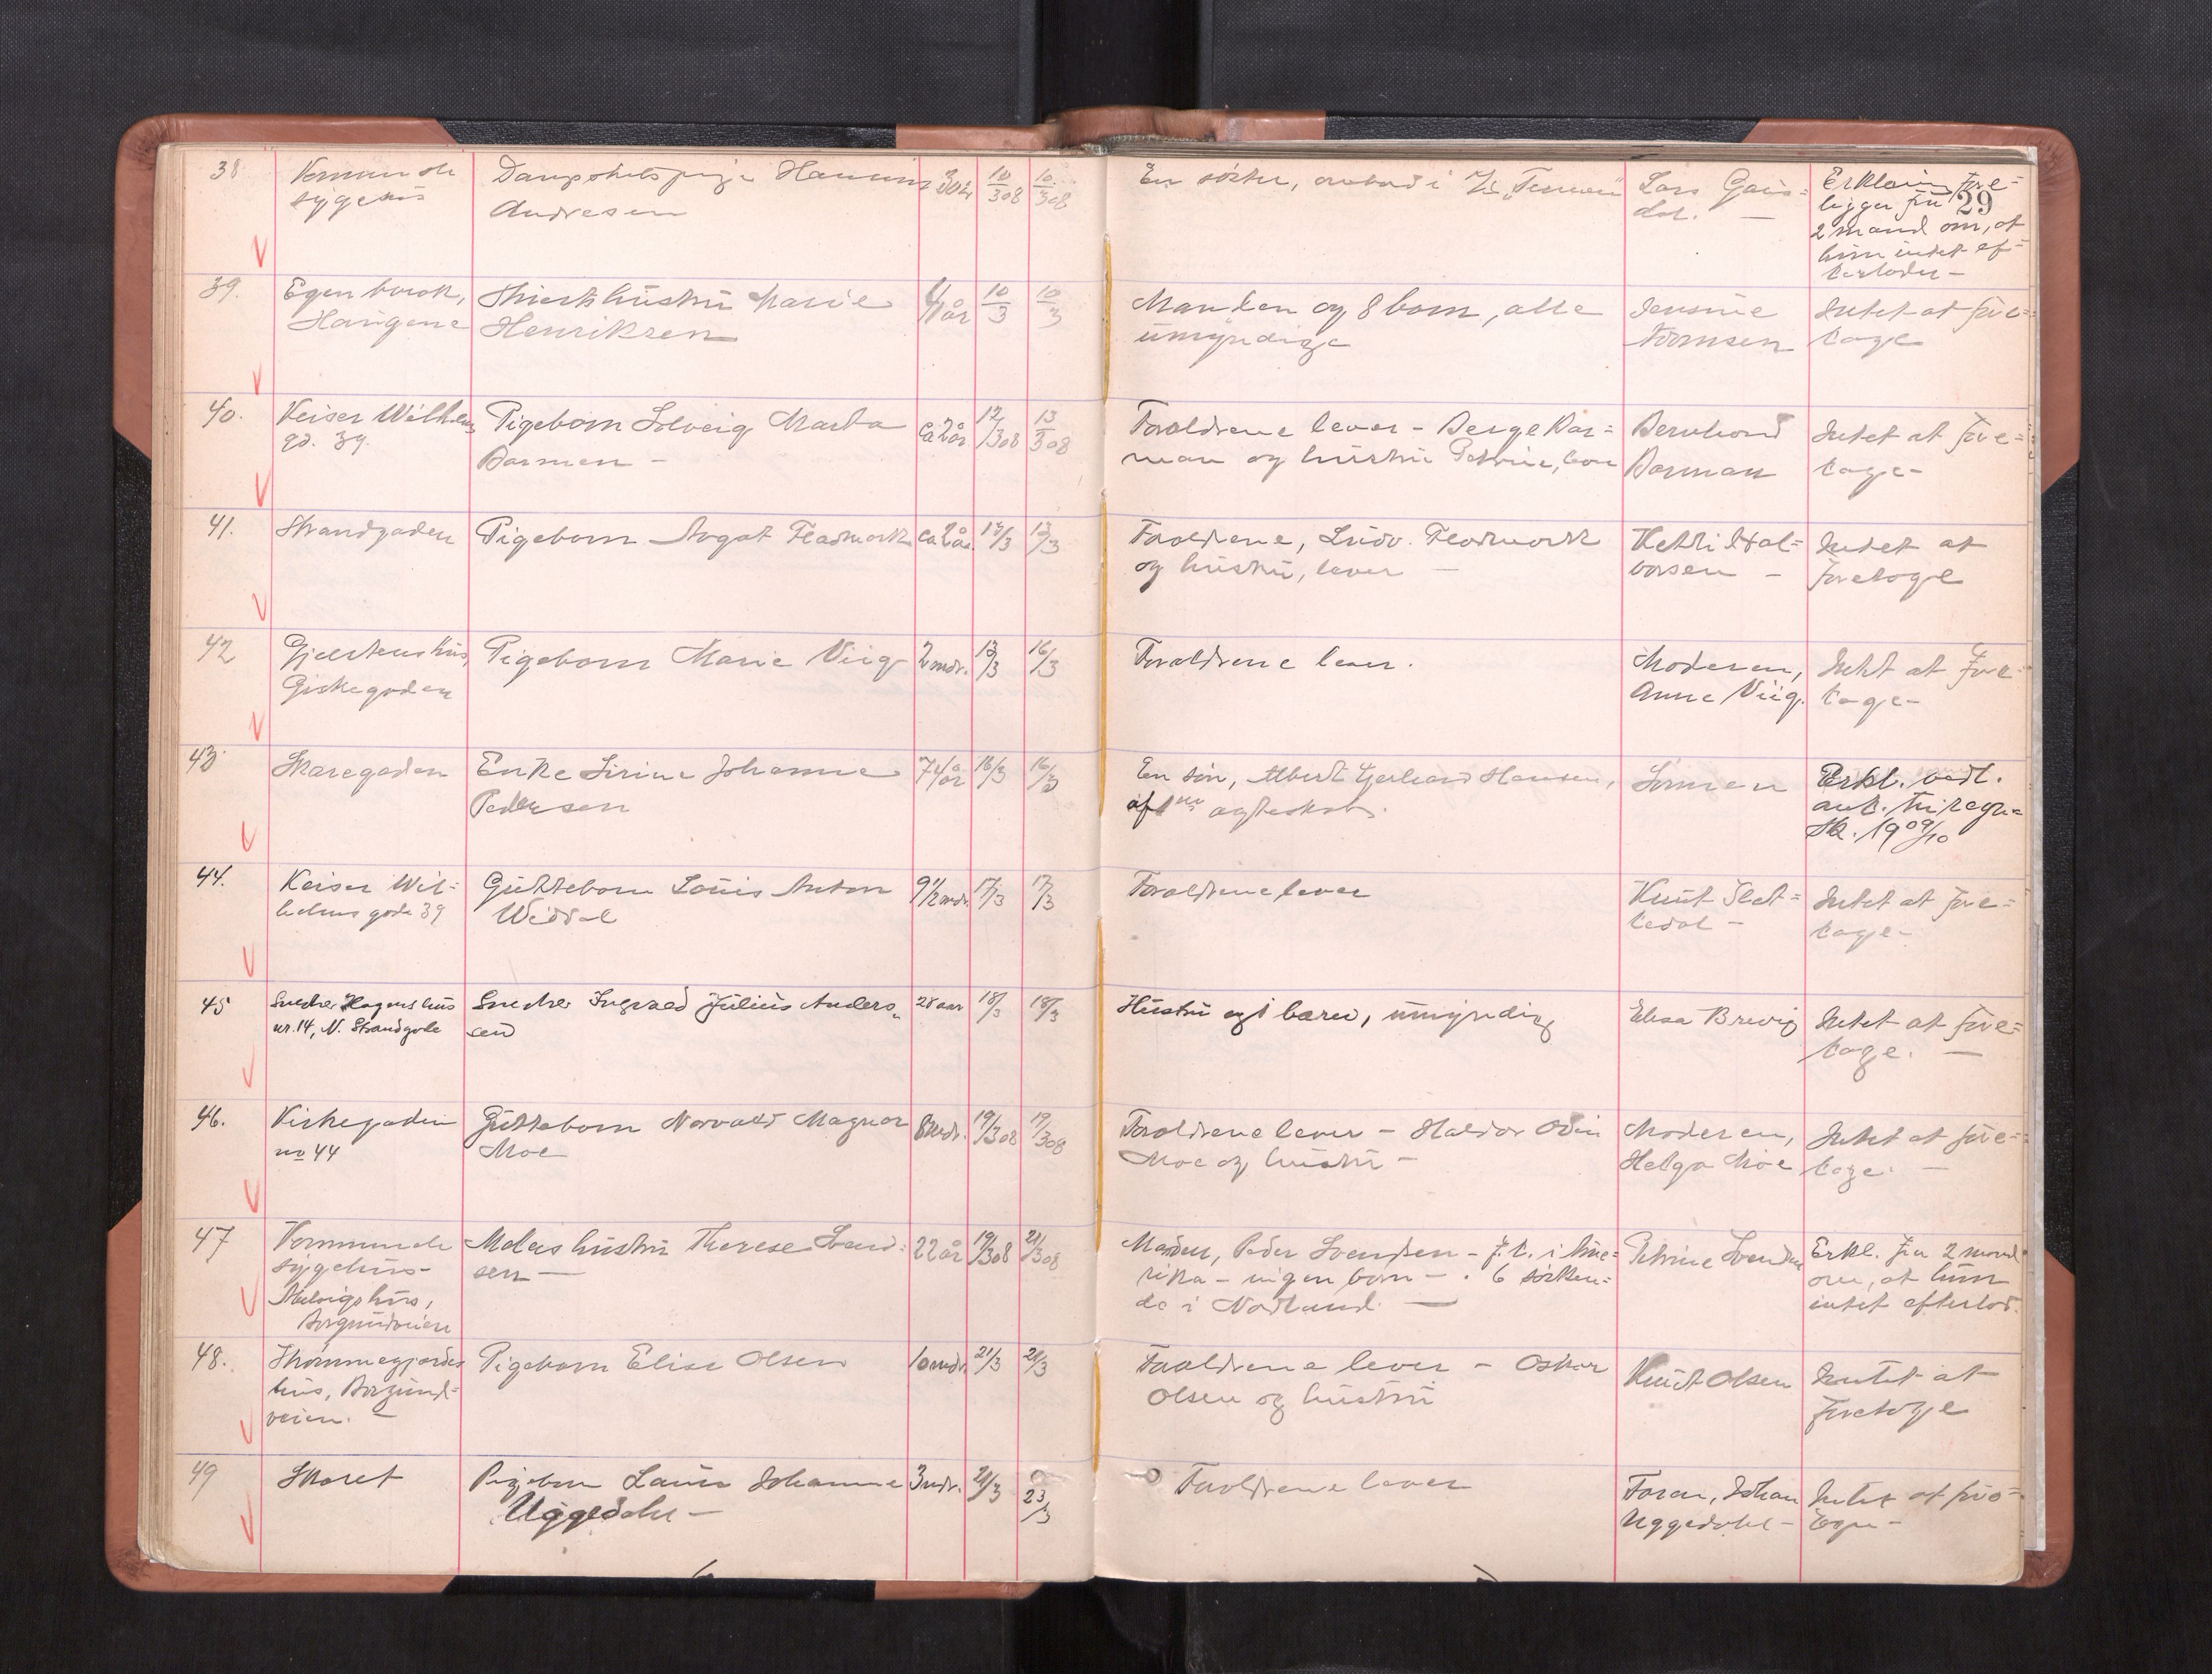 38
sygehus
Andresen
10/3 08
10/3 08
En søster,
Lars
Erklæring fore=
ligger fra
29
2 mand om, at
hun intet ef=
terlader –
39.
Egen bvræk,
Haugene
hustru Marie
Henriksen
41 år
10/3
10/3
Manden og 8 børn, alle
umyndige
Jensine
Intet at fore=
tage
40.
Keiser Wilhelms
gd. 39.
Pigebarn Solveig Marta
Barmen –
ca 2 år
12/3 08
13/3 08
Forældrene lever –
og hustru Petrine,
Bernhard
Barman
Intet at fore=
tage –
41.
Strandgaden
Pigebarn Aagot Fladmark
ca 2 år
12/3
13/3
Forældrene, Ludv. Fladmark
og hustru, lever –
Ketti Hal=
vorsen –
Intet at
foretage
42
Gjertens hus,
Giskegaden
Pigebarn Marie Viig
2 mdr.
13/3
16/3
Forældrene lever.
Moderen,
Anne Viig.
Intet at fore=
tage –
43.
Skaregaden
Enke Sirine Johanne
Pedersen
74 år
16/3
16/3
En søn, Albert Gerhard Hansen,
af 1ste ægteskab.
Sønnen
Erkl. vedl.
1909/10
44.
Keiser Wil=
helms gade 39
Guttebarn Louis Anton
Weddal
9 1/2 mdr.
17/3
17/3
Forældrene lever
Knut Slet=
tedal –
Intet at fore=
tage –
45
Snedker Hagens hus
nr. 14, N. Strandgade
Snedker Ingvald Julius Anders=
en
28 aar
18/3
18/3
Hustru og 1 barn, umyndig
Elisa Brevig
Intet at fore=
tage. –
46.
Kirkegaden
no 44
Guttebarn Norvald Magnar
Moe
8 mdr.
19/3 08
19/3 08
Forældrene lever – Haldor Odin
Moe og hustru –
Moderen,
Helga Moe
Intet at fore=
tage. –
47
Kommunale
sygehus –
hus,
Borgundveien
hustru Therese Svend=
sen –
22 år
19/3 08
21/3 08
Manden, Peder Svendsen – f. t. i Ame=
rika – ingen børn – . 6 søsken=
de i Nordland. –
Petrine Svendsen
Erkl. fra 2 mand
om, at hun
intet efterlod.
48.
hus, Borgund=
veien. –
Pigebarn Elise Olsen
10 mdr.
21/3
21/3
Forældrene lever – Oskar
Olsen og hustru
Knut Olsen
Intet at
foretage
49
Skaret
Pigebarn Laura Johanne
Uggedahl –
3 mdr.
21/3
23/3
Forældrene lever
Faren, Johan
Uggedahl –
Intet at fore=
tage –